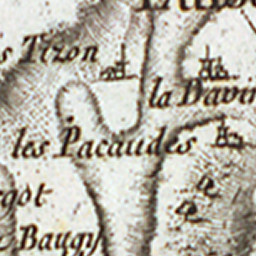 Tizon
la Davin
les Pacaudes
got
Baugy